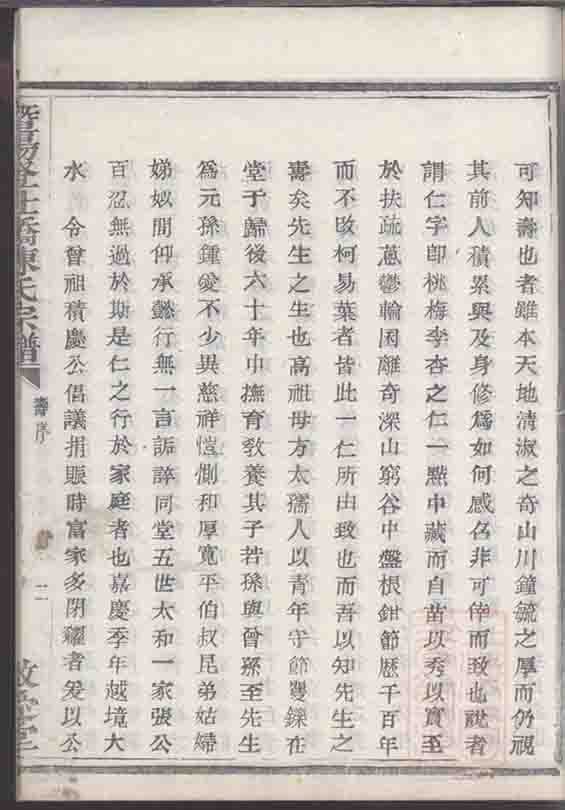 可知壽也者雖本天地清淑之奇山川鐘毓之厚而仍視
其前人積累與及身修為如何感召非可倖而致也說者
謂仁字即桃梅李杏之仁一點中藏而自苗以秀以實至
於扶疏蔥鬱輪囷離奇深山窮谷中盤根錯節歷千百年
而不改柯易葉者皆此一仁所由致也而吾以知先生之
壽矣先生之生也高祖母方太孺人以青年守節矍鑠在
堂于歸後六十年中撫育教養其子若孫與曾孫至先生
為元孫鍾愛不少異慈祥愷惻和厚寬平伯叔昆弟姑婦
娣姒間仰承懿行無一言詬誶同堂五世太和一家張公
百忍無過於斯是仁之行於家庭者也嘉慶季年越境大
水 令曾祖積慶公倡議捐賑時富家多閉糴者爰以公
陳氏宗譜
壽序
二